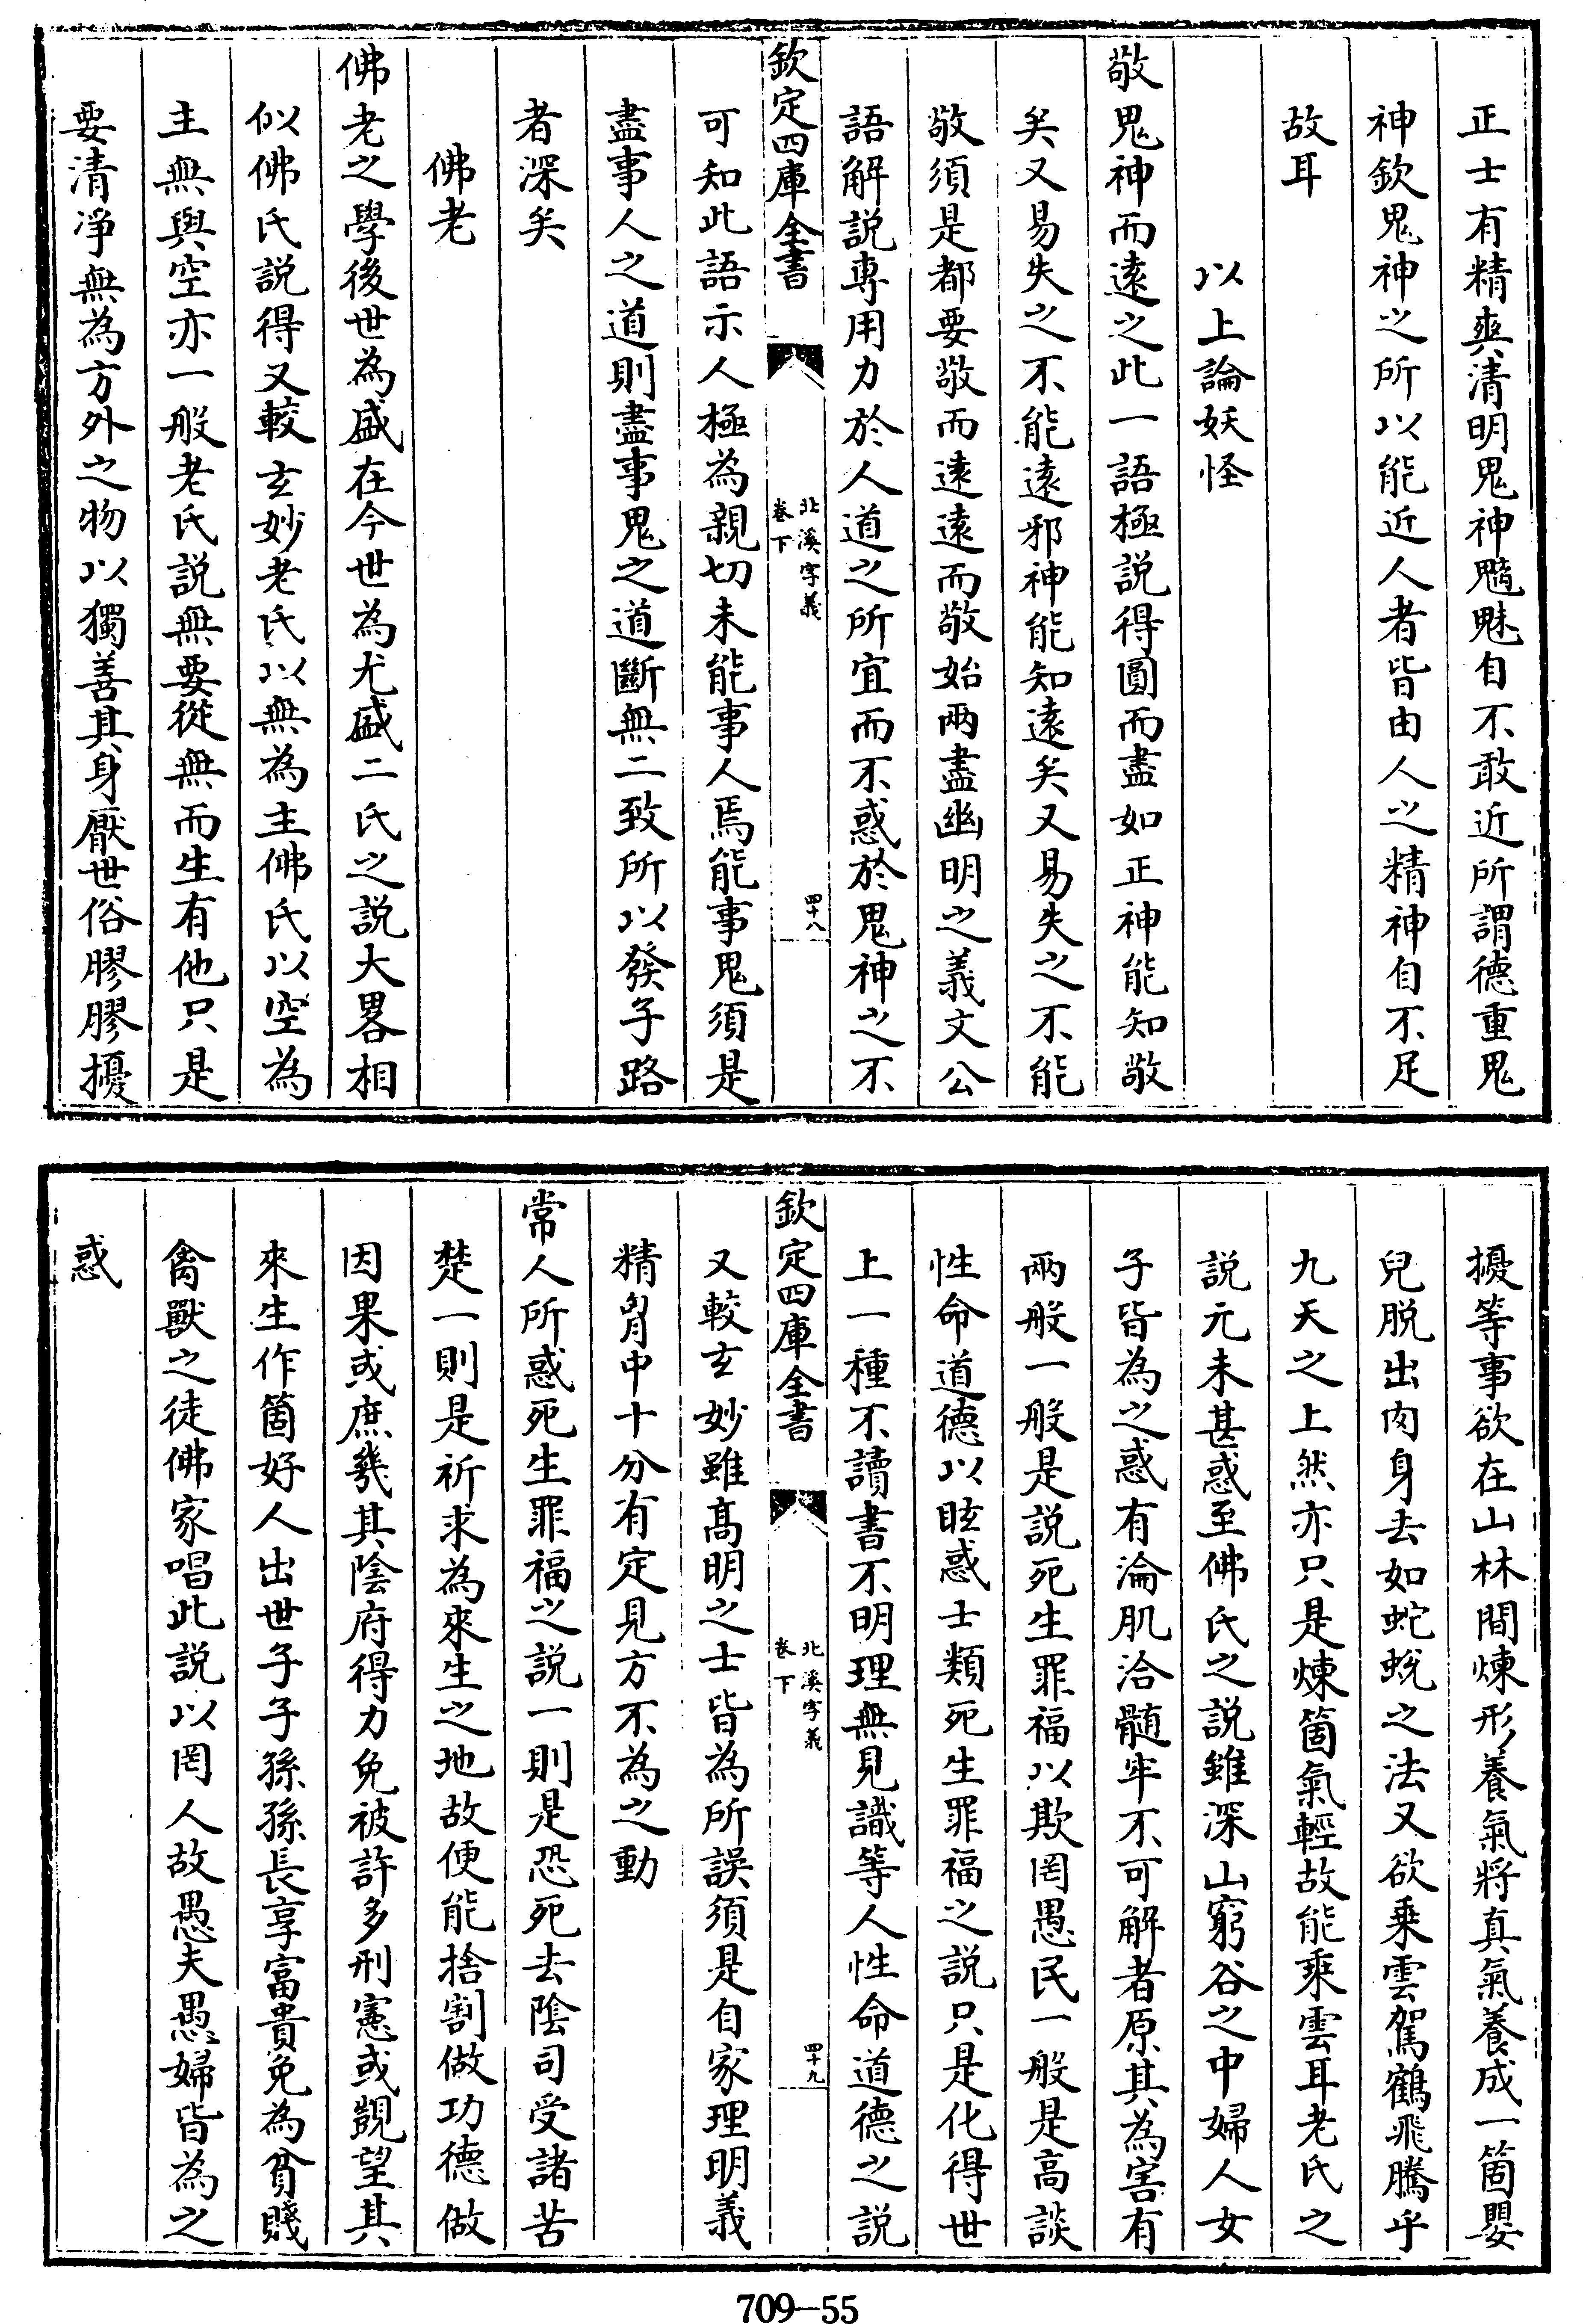 正士有精爽清明鬼神魑魅自不敢近所謂德重鬼
神欽鬼神之所以能近人者皆由人之精神自不足
故耳
以上論妖怪
敬鬼神而遠之此一語極説得圓而盡如正神能知敬
矣又易失之不能遠邪神能知遠矣又易失之不能
敬須是都要敬而遠遠而敬始兩盡幽明之義文公
語解説專用力於人道之所宜而不惑於鬼神之不
欽定四庫全書
北溪字義
卷下
四十八
可知此語示人極為親切未能事人焉能事鬼須是
盡事人之道則盡事鬼之道斷無二致所以發子路
者深矣
佛老
佛老之學後世為盛在今世為尤盛二氏之説大畧相
似佛氏説得又較玄妙老氏以無為主佛氏以空為
主無與空亦一般老氏説無要從無而生有他只是
要清净無為方外之物以獨善其身厭世俗膠膠擾
擾等事欲在山林間煉形養氣將真氣養成一箇嬰
兒脱出肉身去如蛇蜕之法又欲乗雲駕鶴飛騰乎
九天之上然亦只是煉箇氣輕故能乘雲耳老氏之
説元未甚惑至佛氏之説雖深山窮谷之中婦人女
子皆為之惑有淪肌洽髄牢不可解者原其為害有
兩般一般是説死生罪福以欺罔愚民一般是高談
性命道德以眩惑士類死生罪福之説只是化得世
上一種不讀書不明理無見識等人性命道德之説
欽定四庫全書
北溪字義
卷下
四十九
又較玄妙雖髙明之士皆為所誤須是自家理明義
精胷中十分有定見方不為之動
常人所惑死生罪福之説一則是恐死去陰司受諸苦
楚一則是祈求為來生之地故便能捨割做功德做
因果或庶㡬其陰府得力免被許多刑憲或覬望其
來生作箇好人出世子子孫孫長享富貴免為貧賤
禽獸之徒佛家唱此説以罔人故愚夫愚婦皆為之
惑
709—55